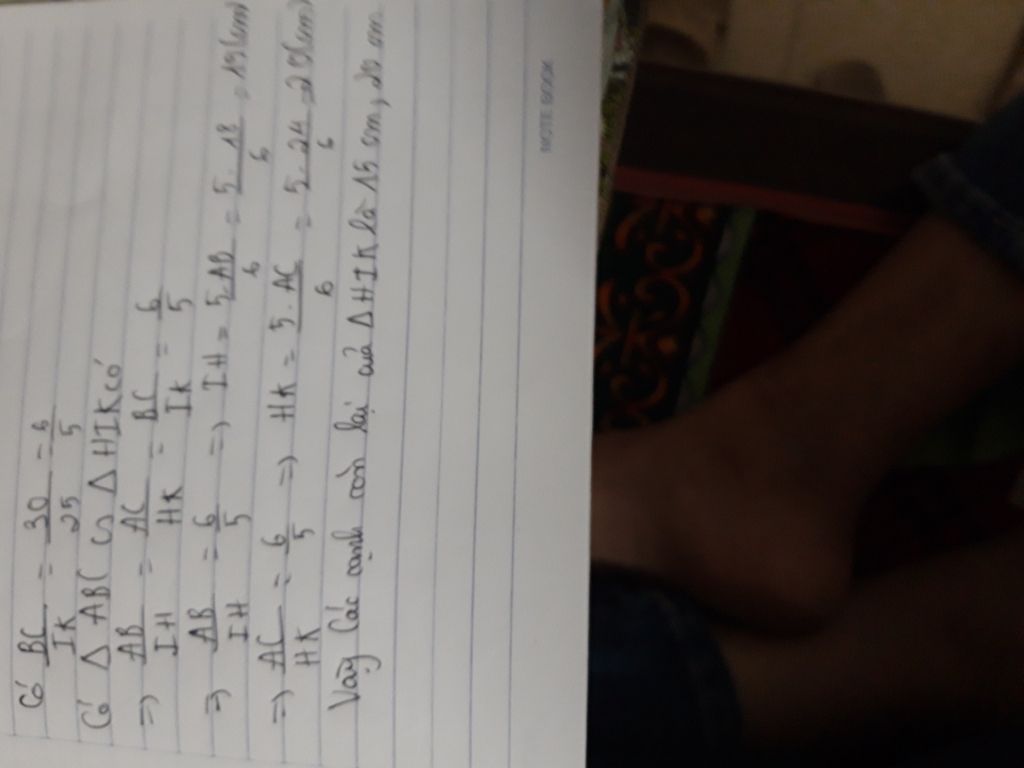 Có BC/IK = 30/25 = 6/5
Có Δ ABC ∽ Δ HIK có
=> AB/IH = AC/HK = BC/IK = 6/5
=> AB/IH = 6/5 => IH = 5.AB/6 = 5.18/6 = 15(cm)
=> AC/HK = 6/5 => HK = 5.AC/6 = 5.24/6 = 20(cm)
Vậy Các cạnh còn lại của Δ HIK là 15 cm, 20 cm
NOTE BOOK